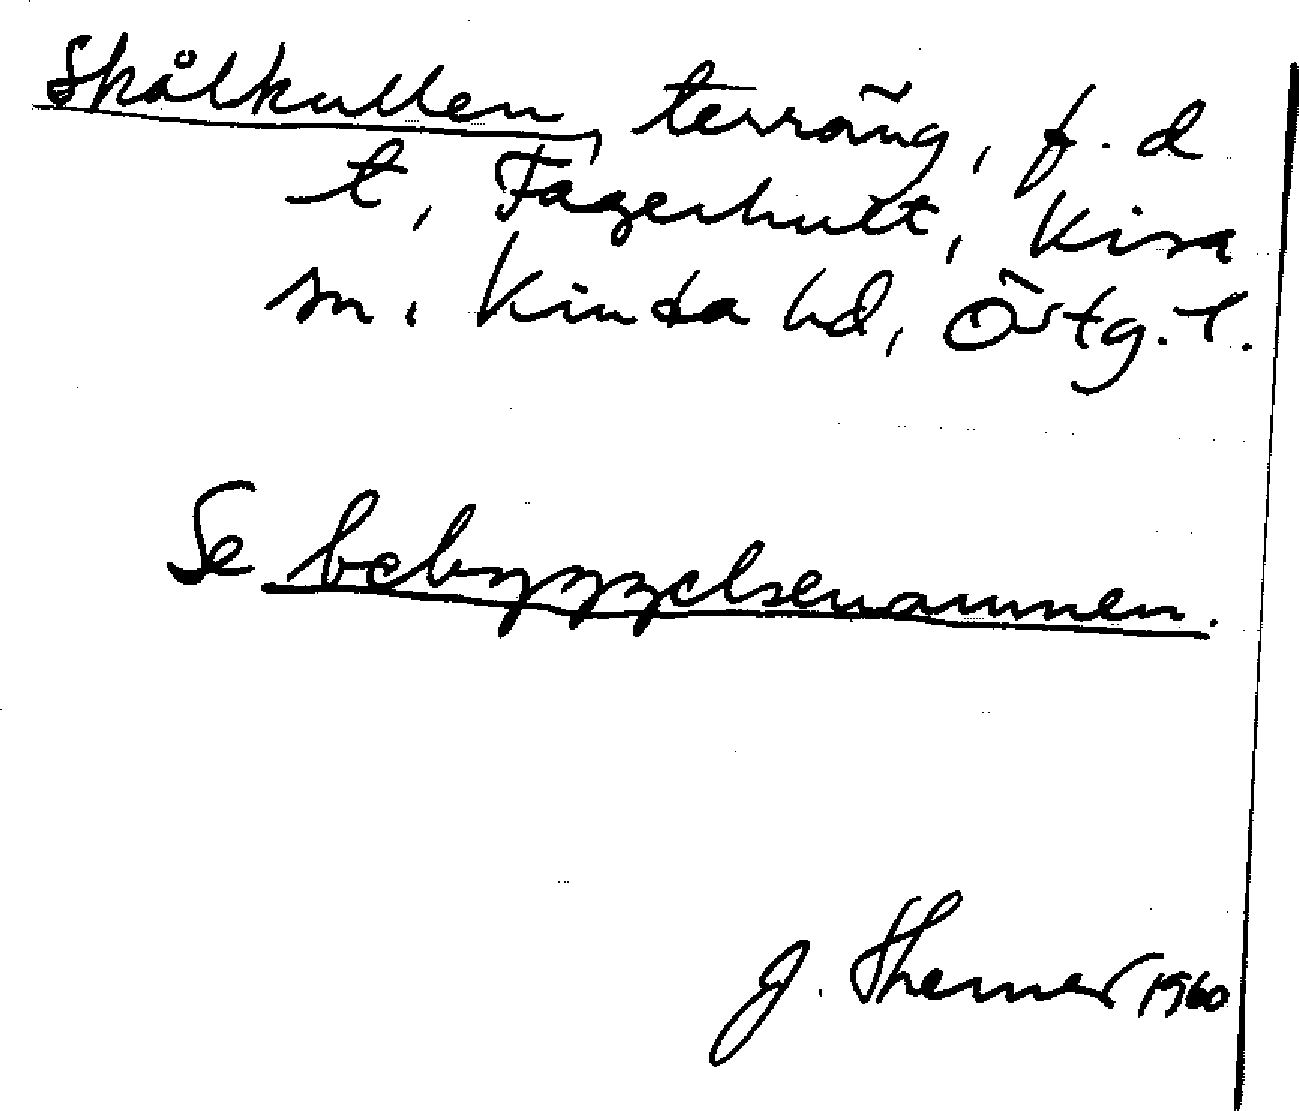 Skålkullen, terräng, f.d
t, Fagerhult, Kisa
sn. Kinda hd, Östg.l.
Se bebyggelsenamnen.
J. Therner 1960